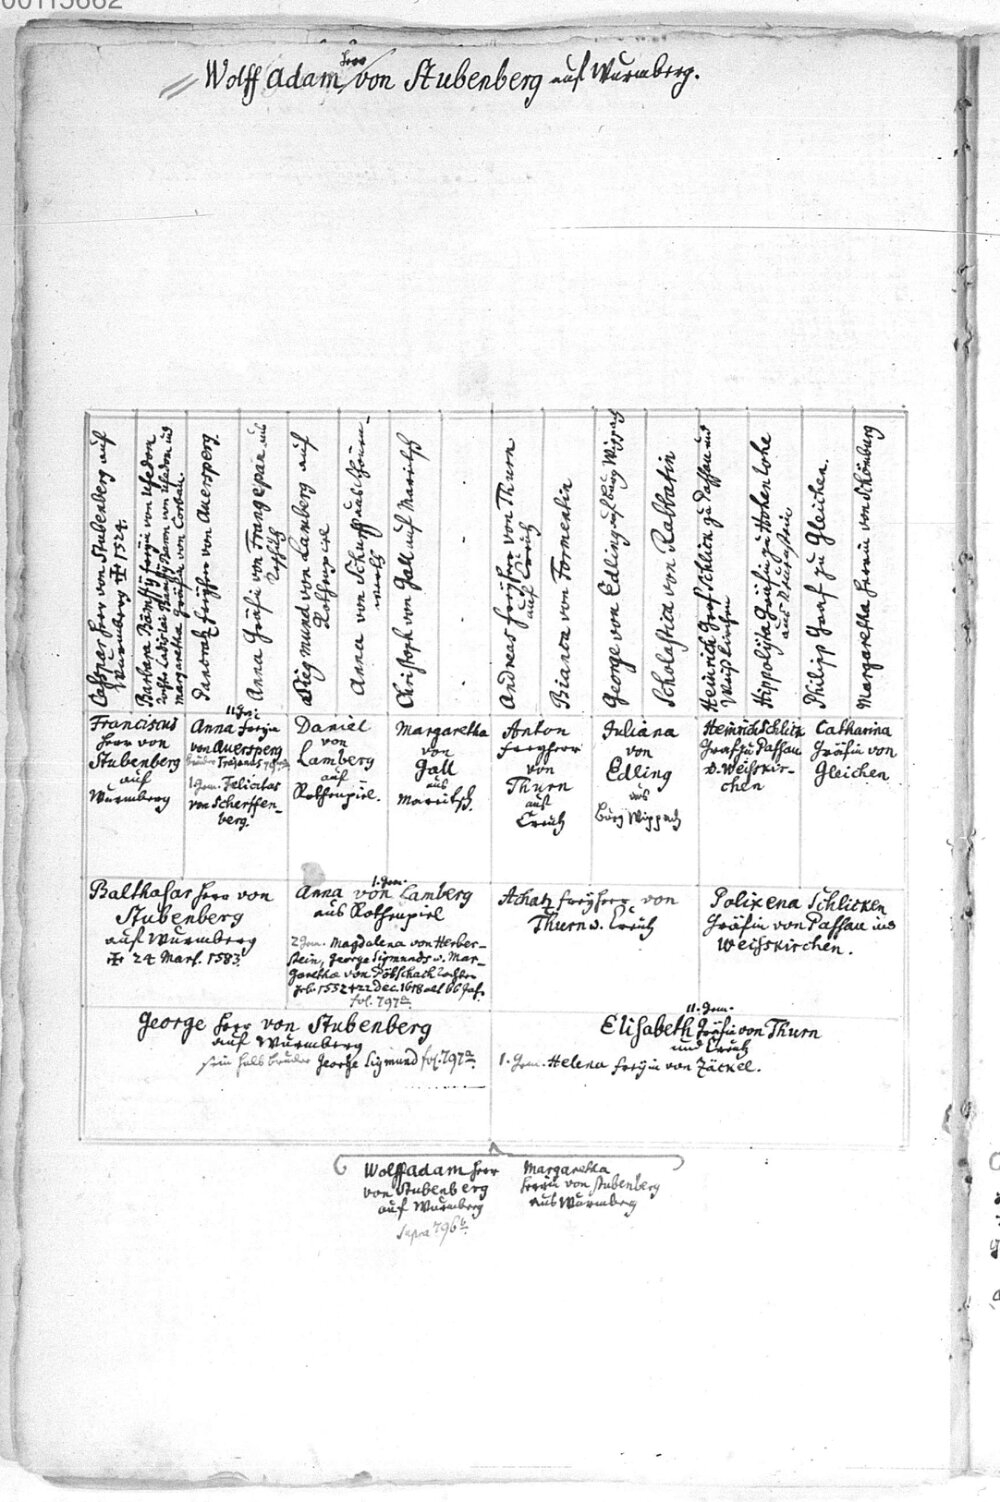 00115662
Wolff Adam Herr von Stubenberg auf Wurmberg.
Caspar Herr von Stubenberg auf
Wurmberg ✠ 1524.
Barbara
Margaretha Gräfin von Corbau.
Freyherr von Auersperg
Anna Gräfin von Frangepan
Siegmund von Lamberg auf
Rothenpiel
Anna von
Christoph von Gall auf
Andreas Freyherr von Thurn
auf Creütz
Bianca von Formentin
George von Edling auf Burg Wippach
Scholastica von Rabbatin
Heinrich Graf Schlick zu Passau und
Weißkirchen
Hippolyta Gräfin zu Hohenlohe
Philipp Graf zu Gleichen.
Margaretha Herrin von Schönburg
Franciscus
Herr von
Stubenberg
auf
Wurmberg
II. Gem:
Anna Freyin
von Auersperg
1. Gem. Felicitas
von Scherffen-
berg.
Daniel
von
Lamberg
auf
Rothenpiel.
Margaretha
von
Gall
aus
Anton
Freyherr
von
Thurn
auf
Creütz
Juliana
von
Edling
aus
Burg Wippach
Heinrich Schlick
Graf zu Passau
v. Weisskir-
chen
Catharina
Gräfin von
Gleichen.
Balthasar Herr von
Stubenberg
auf Wurmberg
✠ 24 Mart. 1583.
1. Gem.
Anna von Lamberg
aus Rothenpiel
2 Gem. Magdalena von Herber-
stein, George Sigmunds v. Mar-
garethæ von Pötschach Tochter
geb. 1552 22 Dec. 1618 æt. 66 Jah.
fol. 797a.
Achatz Freyherr von
Thurn v. Creütz
Polixena Schlicken
Gräfin von Passau und
Weisskirchen.
George Herr von Stubenberg
auf Wurmberg
sein halb bruder George Sigmund fol. 797a.
II. Gem.
Elisabeth Gräfin von Thurn
und Creütz
1. Gem. Helena Freyin von Zäckel.
Wolff Adam Herr
von Stubenberg
auf Wurmberg
Supra 796b.
Margaretha
Herrin von Stubenberg
aus Wurmberg